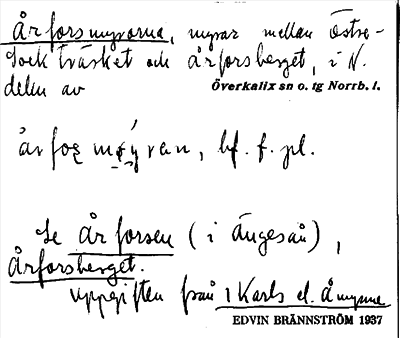 Årforsmyrorna, myrar mellan Östre-
tockträsket och Årforsberget, i N.
delen av Överkalix sn o. tg Norrb. l.
bf. f. pl.
Se Årforsen (i Ängesån),
Årforsberget.
uppgiften från
EDVIN BRÄNNSTRÖM 1937